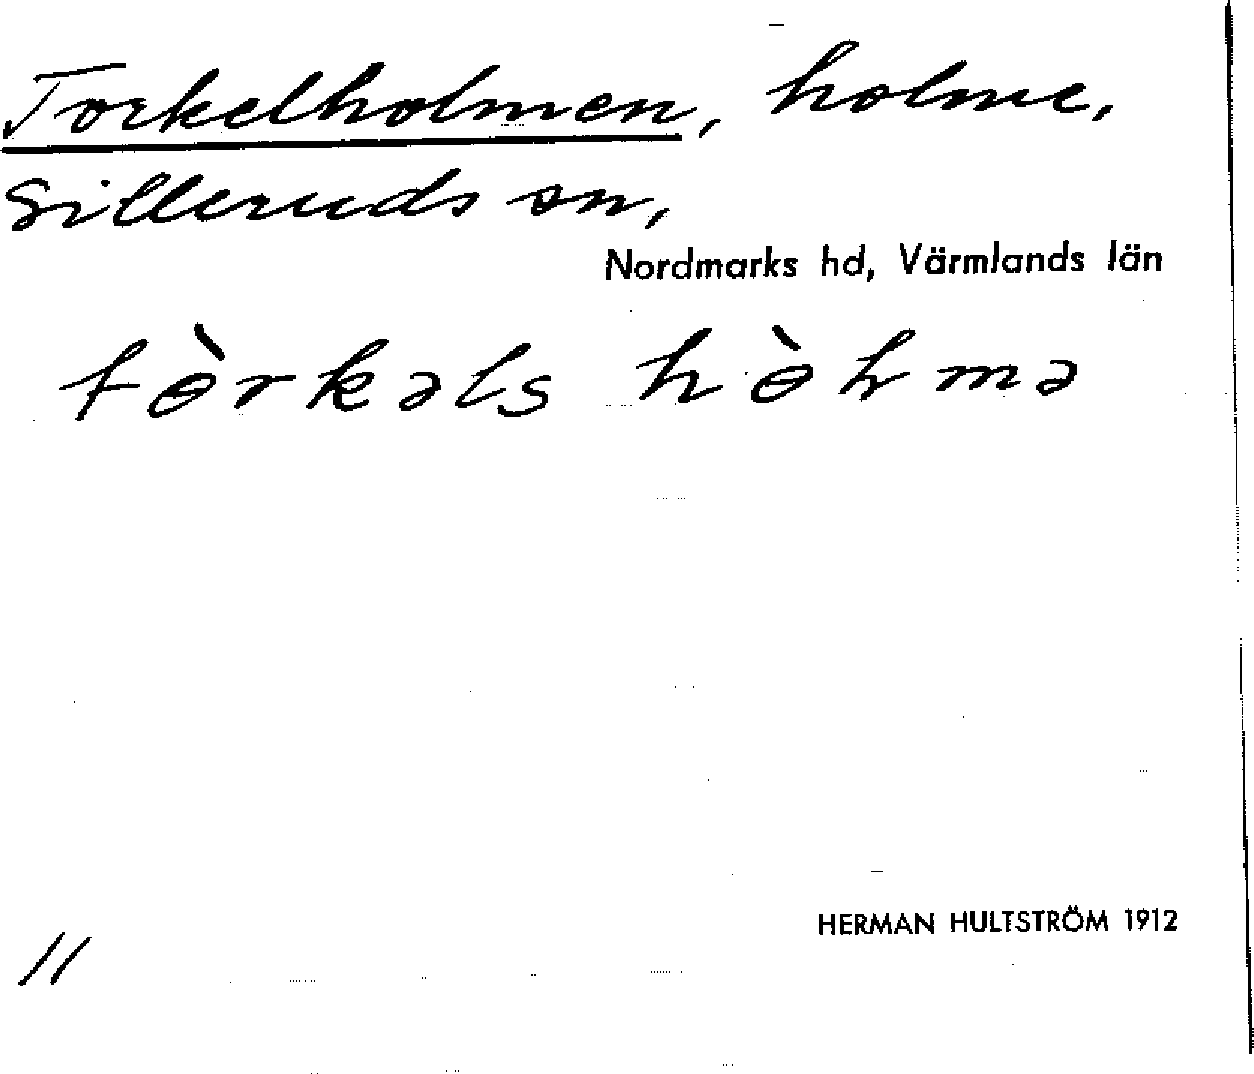 Torkelholmen, holme,
Silleruds sn,
Nordmarks hd, Värmlands län
tɵ̀rkəls hɵ̀ɫmə
11
HERMAN HULTSTRÖM 1912